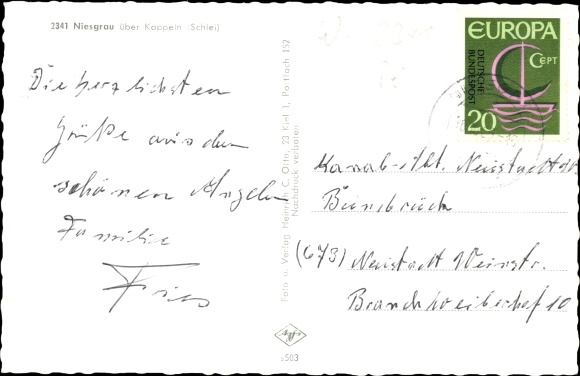 2341 Niesgrau über Kappeln (Schlei)
Die herzlichsten
Grüße aus dem
schönen Angeln
Familie
Fries
Foto u. Verlag Heinrich C. Otto, 23 Kiel 1, Postfach 152
Nachdruck verboten
Agfa
s503
EUROPA
CEPT
DEUTSCHE
BUNDESPOST
20
Neustadt
(673) Neustadt Weinstr.
10